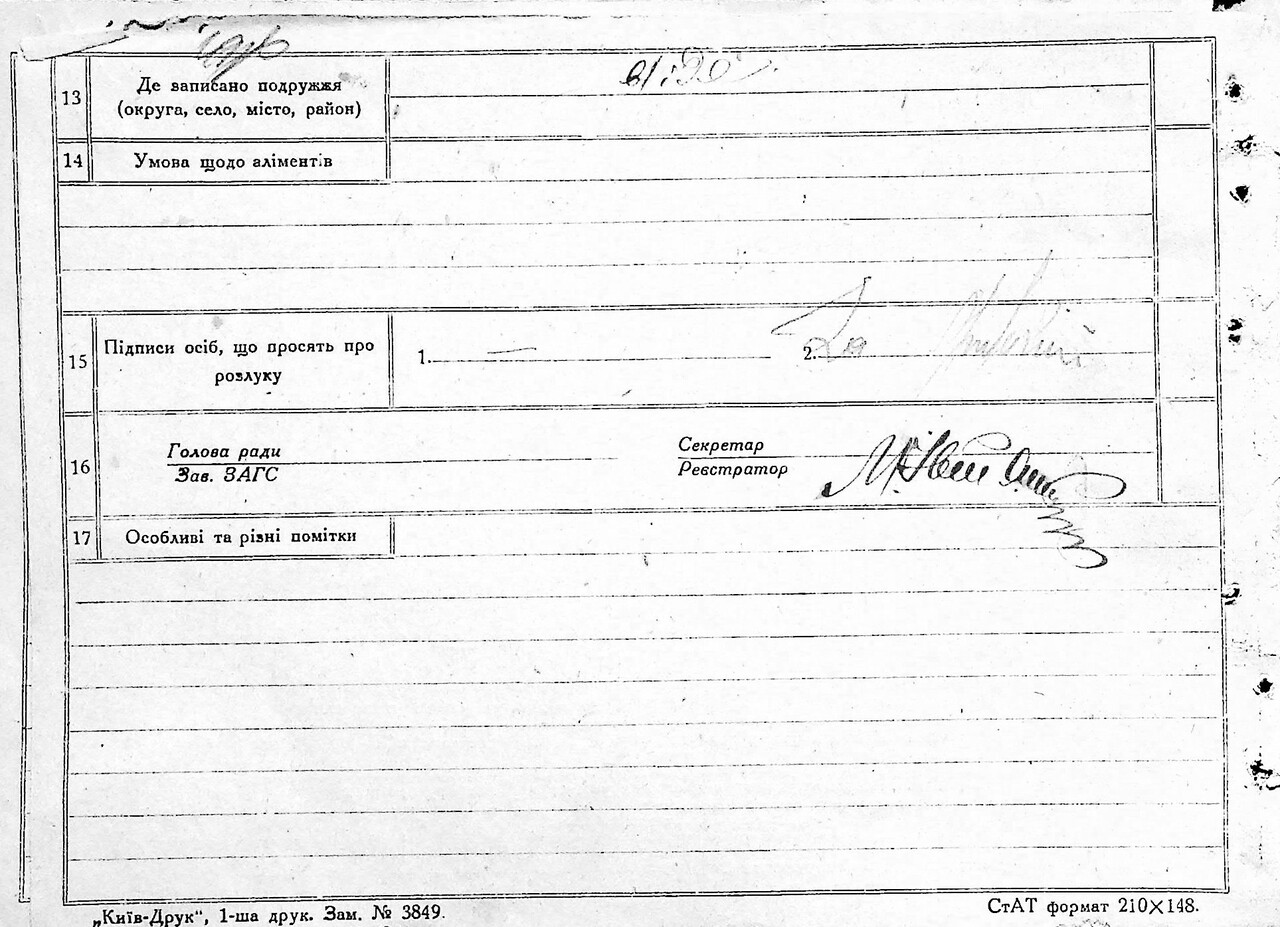 13 Де записано подружжя
(округа, село, місто, район)
14 Умова щодо аліментів
15 Підписи осіб, що просять про
розлуку
1. — 2.
16 Голова ради
Зав. ЗАГС
Секретар
Реєстратор
17 Особливі та різні помітки
„Київ-Друк“, 1-ша друк. Зам. № 3849.
СтАТ формат 210×148.